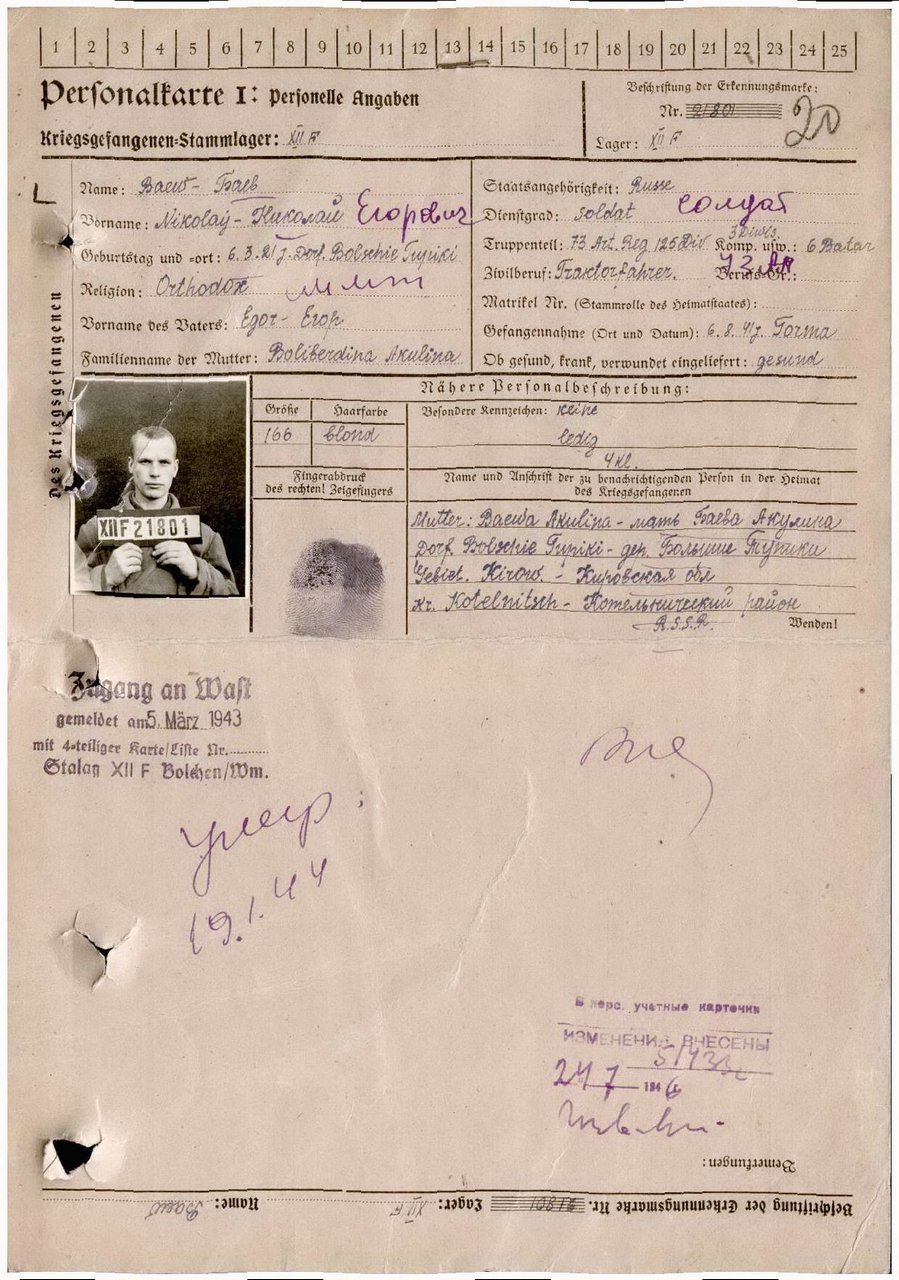 1 2 3 4 5 6 7 8 9 10 11 12 13 14 15 16 17 18 19 20 21 22 23 24 25
Personalkarte I: Personelle Angaben
Beschriftung der Erkennungsmarke:
Nr. 21801
20
Kriegsgefangenen-Stammlager: XII F
Lager: XII F
Des Kriegsgefangenen
Name: Baew - Баев
Vorname: Nikolaÿ - Николай Егорович
Geburtstag und -ort: 6.3.21j. Dorf. Bolschie Tupiki
Religion: Orthodox
Vorname des Vaters: Egor - Егор
Familienname der Mutter: Boliberdina Akulina
Staatsangehörigkeit: Russe
Dienstgrad: soldat солдат
Truppenteil: 73 Art. Reg 125 Div Komp. usw.: 6 Batar
Zivilberuf: Traktorfahrer. Berufs-Gr.:
73
Matrikel Nr. (Stammrolle des Heimatstaates):
Gefangennahme (Ort und Datum): 6.8.41j. Torma
Ob gesund, krank, verwundet eingeliefert: gesund
Nähere Personalbeschreibung:
Größe Haarfarbe
166 blond
Besondere Kennzeichen: keine
ledig
4 kl.
Fingerabdruck
des rechten! Zeigefingers
Name und Anschrift der zu benachrichtigenden Person in der Heimat
des Kriegsgefangenen
Mutter: Baewa Akulina - мать Баева Акулина
Dorf. Bolschie Tupiki - дер. Большие Тупики
Gebiet. Kirow. - Кировская обл
Kr. Kotelnitsch - Котельнический район
R.S.S.R.
Wenden!
XII F 21801
Zugang an Wast
gemeldet am 5. März 1943
mit 4-teiliger Karte/Liste Nr.
Stalag XII F Bolchen/Wm.
умер:
19.1.44
В перс. учетные карточки
ИЗМЕНЕНИЯ ВНЕСЕНЫ
24 7 1946
Bemerkungen:
Beschriftung der Erkennungsmarke Nr. 21801 Lager: XII F Name: Baew